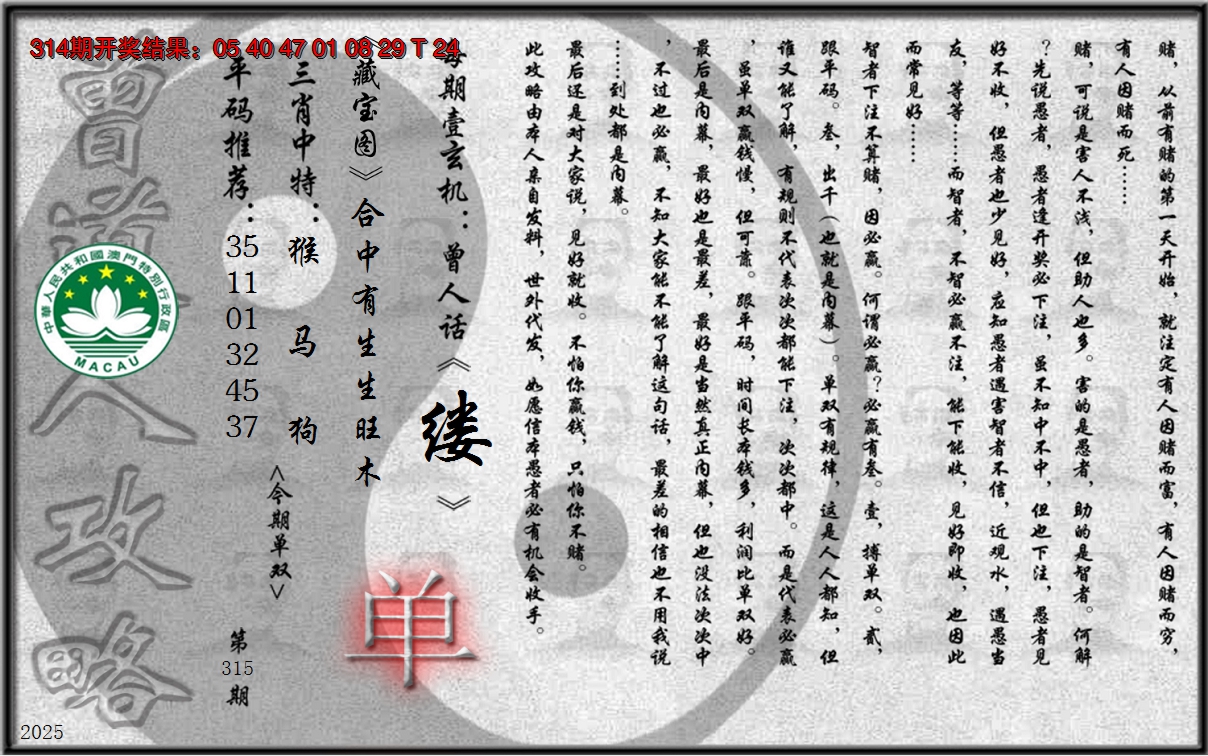 314期开奖结果：05 40 47 01 08 29 T 24
赌，从前有赌的第一天开始，就注定有人因赌而富，有人因赌而穷，
有人因赌而死……
赌，可说是害人不浅，但助人也多。害的是愚者，助的是智者。何解
？先说愚者，愚者逢开奖必下注，虽不知中不中，但也下注，愚者见
好不收，但愚者也少见好，应知愚者遇害智者不信，近观水，遇愚当
友，等等……而智者，不智必赢不注，能下能收，见好即收，也因此
而常见好……
智者下注不算赌，因必赢。何谓必赢？必赢有叁。壹，搏单双。贰，
跟平码。叁，出千（也就是内幕）。单双有规律，这是人人都知，但
谁又能了解，有规则不代表次次都能下注，次次都中。而是代表必赢
，虽单双赢钱慢，但可靠。跟平码，时间长本钱多，利润比单双好。
最后是内幕，最好也是最差，最好是当然真正内幕，但也没法次次中
，不过也必赢，不知大家能不能了解这句话，最差的相信也不用我说
……到处都是内幕。
最后还是对大家说，见好就收。不怕你赢钱，只怕你不赌。
此攻略由本人亲自发料，世外代发，如愿信本愚者必有机会收手。
每期壹玄机：曾人话《缕》
《藏宝图》合中有生生旺木
单
三肖中特：猴 马 狗
<今期单双>
平码推荐：35 11 01 32 45 37
第315期
曾道人攻略
中華人民共和國澳門特別行政區
MACAU
2025